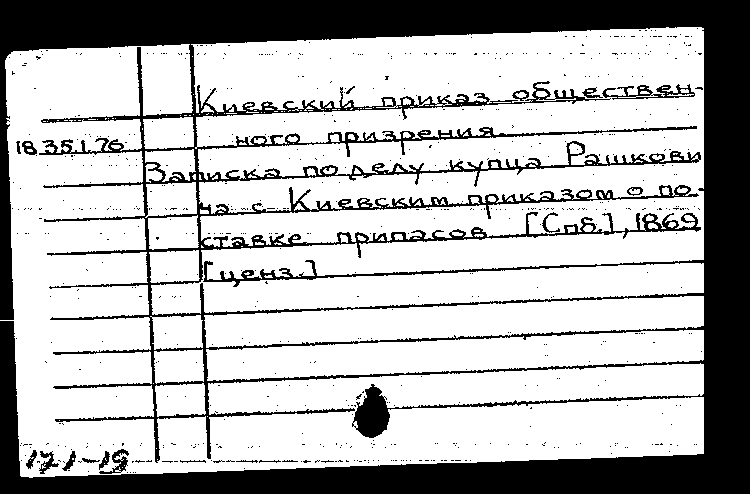 Киевский приказ обществен-
18.35.1.76 ного призрения.
Записка по делу купца Рашкови
ча с Киевским приказом о по-
ставке припасов [Спб.], 1869
[ценз.]
121-19